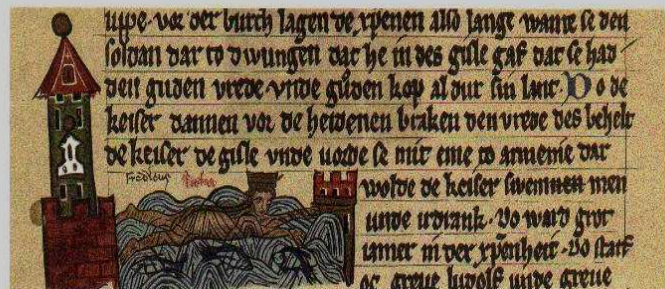 uppe. vor der burch lagen de xpenen also lange wante se den
soldan dar to dwungen dat he in des gisle gaf dat se had
den guden vrede vnde guden kop al dur sin lant. Do de
keiser dannen vor de heidenen braken den vrede des behelt
de keiser de gisle vnde uorde se mit eme to armenie dar
wolde de keiser swemmen men
unde irdrank. Do ward grot
iamer in der xpenheit. Do starf
oc greue ludolf unde greue